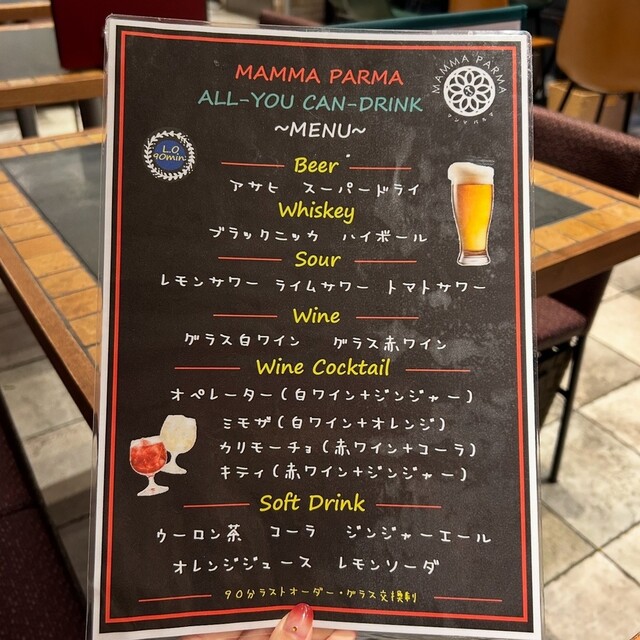 MAMMA PARMA
ALL-YOU CAN-DRINK
~MENU~
MAMMA PARMA
マンマパルマ
L.O
90min
Beer
アサヒ スーパードライ
Whiskey
ブラックニッカ ハイボール
Sour
レモンサワー ライムサワー トマトサワー
Wine
グラス白ワイン グラス赤ワイン
Wine Cocktail
オペレーター(白ワイン+ジンジャー)
ミモザ(白ワイン+オレンジ)
カリモーチョ(赤ワイン+コーラ)
キティ(赤ワイン+ジンジャー)
Soft Drink
ウーロン茶 コーラ ジンジャーエール
オレンジジュース レモンソーダ
90分ラストオーダー・グラス交換制